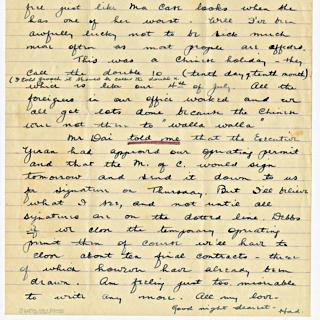 free just like Ma Case looks when she
has one of her worst. Well I've been
awfully lucky not to be sick much
more often as most people are affected.
This was a Chinese holiday - they
call the double 10 (tenth day & tenth month)
(I told Joseph it should be called the double x
which is like our 4th of July. All the
foreigners in our office worked and we
all got lots done because the Chinese
were not there to "walla walla"
Mr Dai told me that the Executive
Yuan had approved our operating permit
and that the M. of C. would sign
tomorrow and send it down to us
for signature on Thursday. But I'll believe
what I see, and not until all
signatures are on the dotted line. Debbs
if we close the temporary operating
permit then of course we'll have to
close about ten final contracts - three
of which however have already been
drawn. Am feeling just too miserable
to write any more. All my love.
Good night dearest - Had.